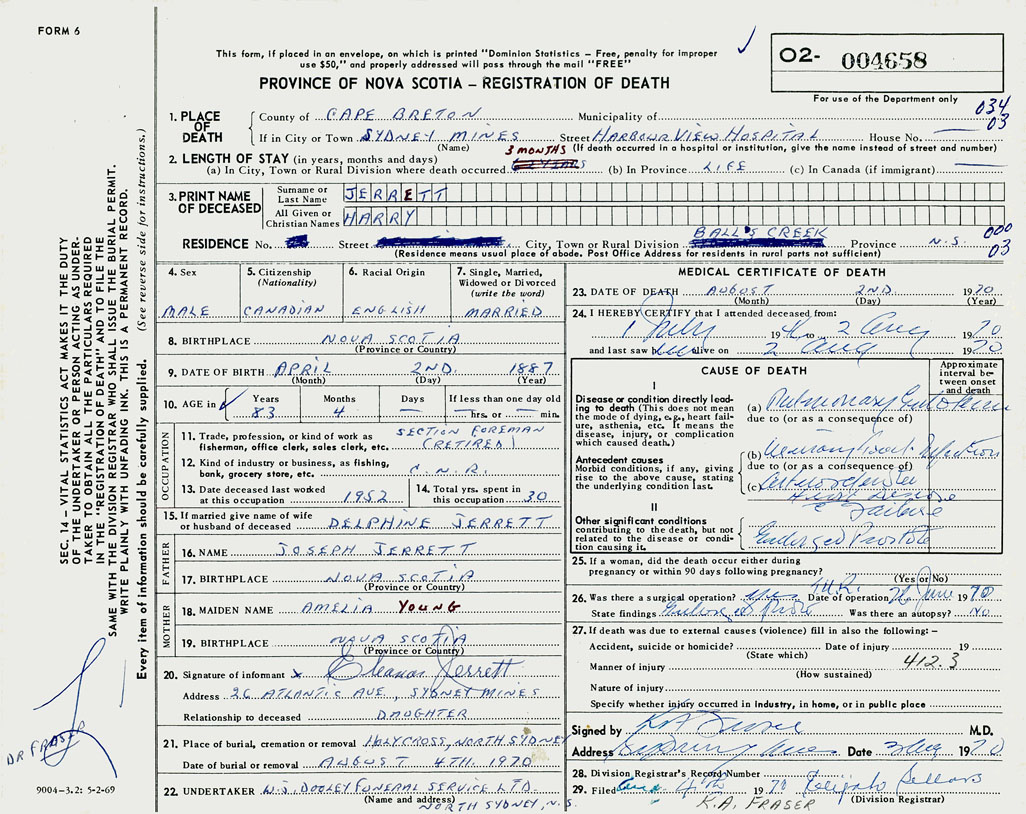 FORM 6
This form, if placed in an envelope, on which is printed "Dominion Statistics – Free, penalty for improper
use $50," and properly addressed will pass through the mail "FREE"
PROVINCE OF NOVA SCOTIA – REGISTRATION OF DEATH
O2- 004658
For use of the Department only
034
03
1. PLACE OF DEATH
County of CAPE BRETON Municipality of
If in City or Town SYDNEY MINES Street HARBOUR VIEW HOSPITAL House No.
(Name) (If death occurred in a hospital or institution, give the name instead of street and number)
3 MONTHS
2. LENGTH OF STAY (in years, months and days)
(a) In City, Town or Rural Division where death occurred (b) In Province LIFE (c) In Canada (if immigrant)
3. PRINT NAME OF DECEASED
Surname or Last Name JERRETT
All Given or Christian Names HARRY
BALL'S CREEK
000
03
RESIDENCE No. Street City, Town or Rural Division Province N.S.
(Residence means usual place of abode. Post Office Address for residents in rural parts not sufficient)
4. Sex
MALE
5. Citizenship (Nationality)
CANADIAN
6. Racial Origin
ENGLISH
7. Single, Married, Widowed or Divorced (write the word)
MARRIED
8. BIRTHPLACE NOVA SCOTIA
(Province or Country)
9. DATE OF BIRTH APRIL 2ND. 1887
(Month) (Day) (Year)
10. AGE in
Years Months Days If less than one day old
83 4 — hrs. or min.
OCCUPATION
11. Trade, profession, or kind of work as fisherman, office clerk, sales clerk, etc. SECTION FOREMAN (RETIRED)
12. Kind of industry or business, as fishing, bank, grocery store, etc. C.N.R.
13. Date deceased last worked at this occupation 1952
14. Total yrs. spent in this occupation 30
15. If married give name of wife or husband of deceased DELPHINE JERRETT
FATHER
16. NAME JOSEPH JERRETT
17. BIRTHPLACE NOVA SCOTIA
(Province or Country)
MOTHER
18. MAIDEN NAME AMELIA YOUNG
19. BIRTHPLACE NOVA SCOTIA
(Province or Country)
20. Signature of informant x Eleanor Jerrett
Address 26 ATLANTIC AVE, SYDNEY MINES
Relationship to deceased DAUGHTER
21. Place of burial, cremation or removal HOLYCROSS, NORTH SYDNEY
Date of burial or removal AUGUST 4TH. 1970
22. UNDERTAKER W.J. DOOLEY FUNERAL SERVICE LTD.
(Name and address) NORTH SYDNEY, N.S.
MEDICAL CERTIFICATE OF DEATH
23. DATE OF DEATH AUGUST 2ND. 1970
(Month) (Day) (Year)
24. I HEREBY CERTIFY that I attended deceased from:
1 July 19 to 2 Aug 1970
and last saw him alive on 2 Aug 1970
CAUSE OF DEATH
Approximate interval between onset and death
I
Disease or condition directly leading to death (This does not mean the mode of dying, e.g., heart failure, asthenia, etc. It means the disease, injury, or complication which caused death.)
(a) Pulmonary
due to (or as a consequence of)
Antecedent causes
Morbid conditions, if any, giving rise to the above cause, stating the underlying condition last.
(b)
due to (or as a consequence of)
(c) Heart Disease
& Failure
II
Other significant conditions contributing to the death, but not related to the disease or condition causing it.
Enlarged Prostate
25. If a woman, did the death occur either during pregnancy or within 90 days following pregnancy?
(Yes or No)
T.U.R.
26. Was there a surgical operation? yes Date of operation 26 June 1970
State findings Enlarged Prostate Was there an autopsy? No
27. If death was due to external causes (violence) fill in also the following: –
Accident, suicide or homicide? Date of injury 19
(State which)
412.3
Manner of injury
(How sustained)
Nature of injury
Specify whether injury occurred in industry, in home, or in public place
Signed by M.D.
Address Sydney Mines Date 3 Aug 1970
28. Division Registrar's Record Number
29. Filed Aug 4th 1970
(Division Registrar)
K.A. FRASER
SEC. 14 – VITAL STATISTICS ACT MAKES IT THE DUTY
OF THE UNDERTAKER OR PERSON ACTING AS UNDER-
TAKER TO OBTAIN ALL THE PARTICULARS REQUIRED
IN THE "REGISTRATION OF DEATH" AND TO FILE THE
SAME WITH THE DIVISION REGISTRAR WHO SHALL ISSUE THE BURIAL PERMIT.
WRITE PLAINLY WITH UNFADING INK. THIS IS A PERMANENT RECORD.
Every item of information should be carefully supplied. (See reverse side for instructions.)
DR FRASER
9004-3.2: 5-2-69